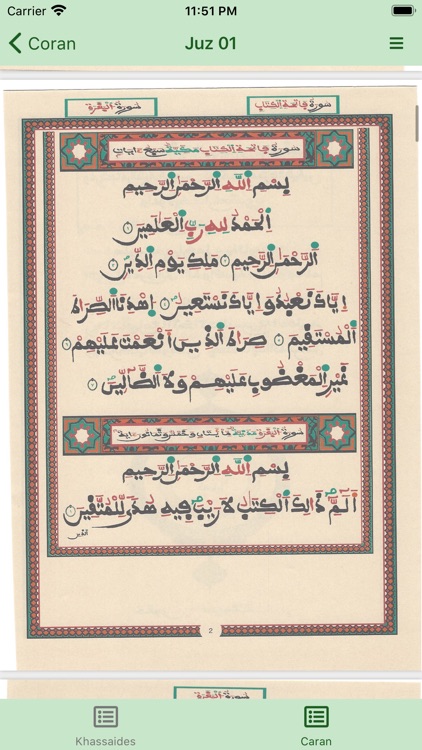 Carrier 11:51 PM
Coran Juz 01
سورة فاتحة الكتاب سورة البقرة
سورة فاتحة الكتاب مكية سبع ءايات
بِسْمِ اللَّهِ الرَّحْمَٰنِ الرَّحِيمِ
اَلْحَمْدُ لِلهِ رَبِّ الْعَٰلَمِينَ
اَلرَّحْمَٰنِ الرَّحِيمِ مَلِكِ يَوْمِ الدِّينِ
إِيَّاكَ نَعْبُدُ وَإِيَّاكَ نَسْتَعِينُ اِهْدِنَا الصِّرَٰطَ
اَلْمُسْتَقِيمَ صِرَٰطَ الَّذِينَ أَنْعَمْتَ عَلَيْهِمْ
غَيْرِ الْمَغْضُوبِ عَلَيْهِمْ وَلَا الضَّآلِّينَ
سورة البقرة مدنية
بِسْمِ اللَّهِ الرَّحْمَٰنِ الرَّحِيمِ
أَلَمِّ ذَٰلِكَ الْكِتَٰبُ لَا رَيْبَ فِيهِ هُدًى لِّلْمُتَّقِينَ
الذين
2
سورة البقرة
Khassaides Caran